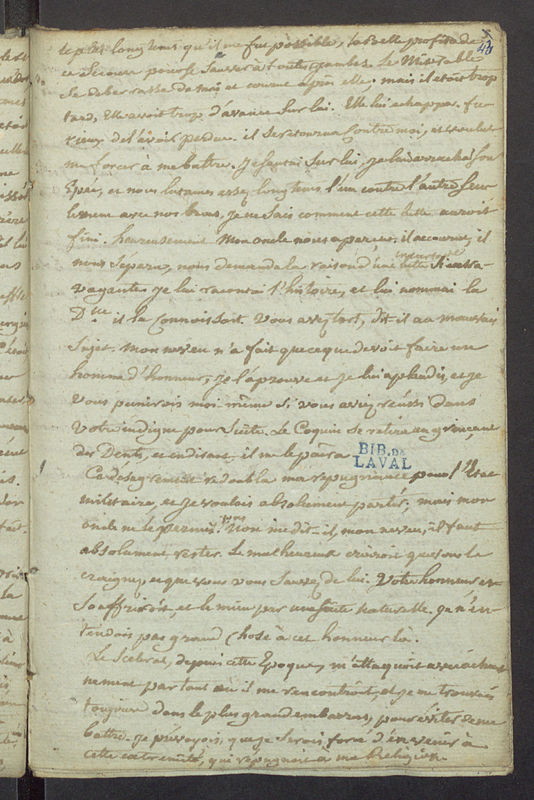 46
le plus longtems qu'il me fut possible, la Belle profita de
ce secours pour se sauver à toutes jambes. Le Miserable
se debarrassa de moi et courut après elle; mais il etoit trop
tard, Elle avoit trop d'avance sur lui. Elle lui echappa. fu-
rieux de l'avoir perdue. il se retourna contre moi, et voulut
me forcer à me battre. Je sautai sur lui, je lui arrachai son
Epée, et nous lutames assez longtems l'un contre l'autre seu-
lement avec nos bras, je ne sais comment cette lutte auroit
fini. heureusement Mon oncle nous apercut; il accourut, il
nous separa, nous demanda la raison d'une lutte si extra-
vagante. Je lui racontai l'histoire, et lui nommai la
Dlle. il la connoissoit. Vous avez tort, dit-il au mauvais
sujet. mon neveu n'a fait que ce que devoit faire un
homme d'honneur; je l'aprouve et je lui aplaudis, et je
vous punirois moi même si vous aviez reussi dans
votre indigne poursuite. Le Coquin se retira en grinçant
des Dents, et en disant, il me le paira
BIB. DE
LAVAL
Ce desagrement redoubla ma repugnance pour l'Etat
militaire, et je voulois absolument partir; mais mon
oncle ne le permit pas. Non me dit-il, mon neveu, il faut
absolument rester. Le malheureux croiroit que vous le
craignez, et que vous vous sauvez de lui. Votre honneur en
souffriroit, et le mien par une suite naturelle. je n'en-
tendois pas grand chose à cet honneur là.
Le Scelerat, depuis cette Epoque, m'attaquoit avec acharne-
nement par tout où il me rencontroit, et je me trouvois
toujours dans le plus grand embarras, pour éviter de me
battre. Je prevoyois que je serois forcé d'en venir à
cette extremité, qui repugnoit à ma Religion.